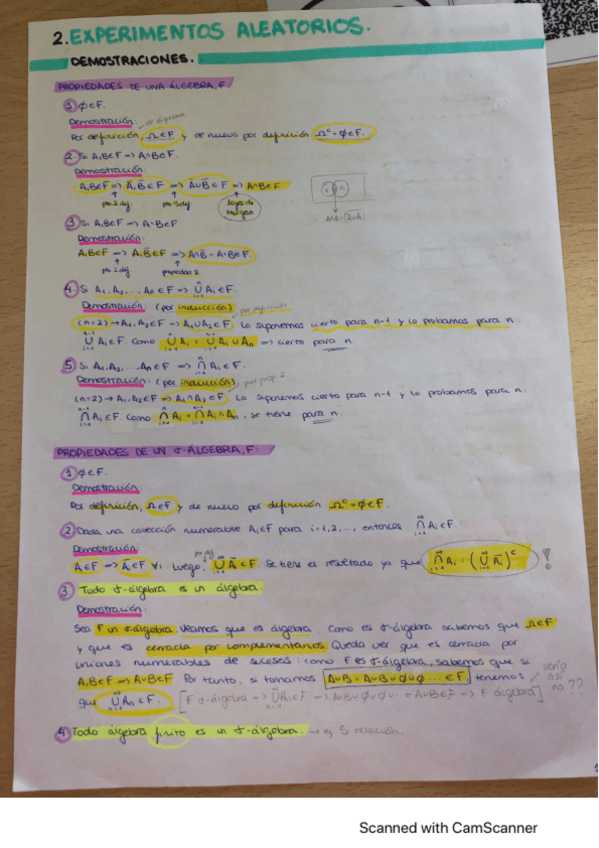 2. EXPERIMENTOS ALEATORIOS.
DEMOSTRACIONES.
PROPIEDADES DE UNA ÁLGEBRA, F
① ∅∈F.
Demostración: de álgebra
Por definición, Ω∈F y de nuevo por definición Ωᶜ=∅∈F.
② Si A,B∈F => A∩B∈F.
Demostración:
A,B∈F => A̅,B̅∈F => A̅∪B̅∈F => A∩B∈F
por 2 def. por 3 def. Leyes de Morgan
A∩B=(A̅∪B̅)
③ Si A,B∈F => A\B∈F
Demostración:
A,B∈F => A,B̅∈F => A∩B̅=A\B∈F.
por 2 def. propiedad 2
④ Si A₁,A₂,...,Aₙ∈F => ⋃ᵢ₌₁ⁿ Aᵢ∈F.
Demostración: (por inducción) por definición
(n=2) → A₁,A₂∈F => A₁∪A₂∈F. Lo suponemos cierto para n-1 y lo probamos para n.
⋃ᵢ₌₁ⁿ⁻¹ Aᵢ∈F. Como ⋃ᵢ₌₁ⁿ Aᵢ = ⋃ᵢ₌₁ⁿ⁻¹ Aᵢ∪Aₙ => cierto para n.
⑤ Si A₁,A₂,...,Aₙ∈F => ⋂ᵢ₌₁ⁿ Aᵢ∈F.
Demostración: (por inducción) por prop. 2
(n=2) → A₁,A₂∈F => A₁∩A₂∈F. Lo suponemos cierto para n-1 y lo probamos para n.
⋂ᵢ₌₁ⁿ⁻¹ Aᵢ∈F. Como ⋂ᵢ₌₁ⁿ Aᵢ = ⋂ᵢ₌₁ⁿ⁻¹ Aᵢ∩Aₙ, se tiene para n.
PROPIEDADES DE UN σ-ÁLGEBRA, F:
① ∅∈F.
Demostración:
Por definición, Ω∈F y de nuevo por definición Ωᶜ=∅∈F.
② Dada una colección numerable Aᵢ∈F para i=1,2,..., entonces ⋂ᵢ₌₁^∞ Aᵢ∈F.
Demostración: por def.
Aᵢ∈F => A̅ᵢ∈F ∀i. Luego, ⋃ᵢ₌₁^∞ A̅ᵢ∈F. Se tiene el resultado ya que ⋂ᵢ₌₁^∞ Aᵢ = (⋃ᵢ₌₁^∞ A̅ᵢ)ᶜ !
③ Todo σ-álgebra es un álgebra.
Demostración:
Sea F un σ-álgebra. Veamos que es álgebra. Como es σ-álgebra sabemos que Ω∈F
y que es cerrada por complementarios. Queda ver que es cerrada por
uniones numerables de sucesos: como F es σ-álgebra, sabemos que si
A,B∈F => A∪B∈F. Por tanto, si tomamos A∪B=A∪B∪∅∪∅...∈F tenemos
que ⋃ₙ₌₁^∞ Aₙ∈F. [F σ-álgebra => ⋃ₙ₌₁^∞ Aₙ∈F => A∪B∪∅∪∅∪ = A∪B∈F => F álgebra]
sería así no??
④ Todo álgebra finito es un σ-álgebra. → ej 5 relación.
Scanned with CamScanner